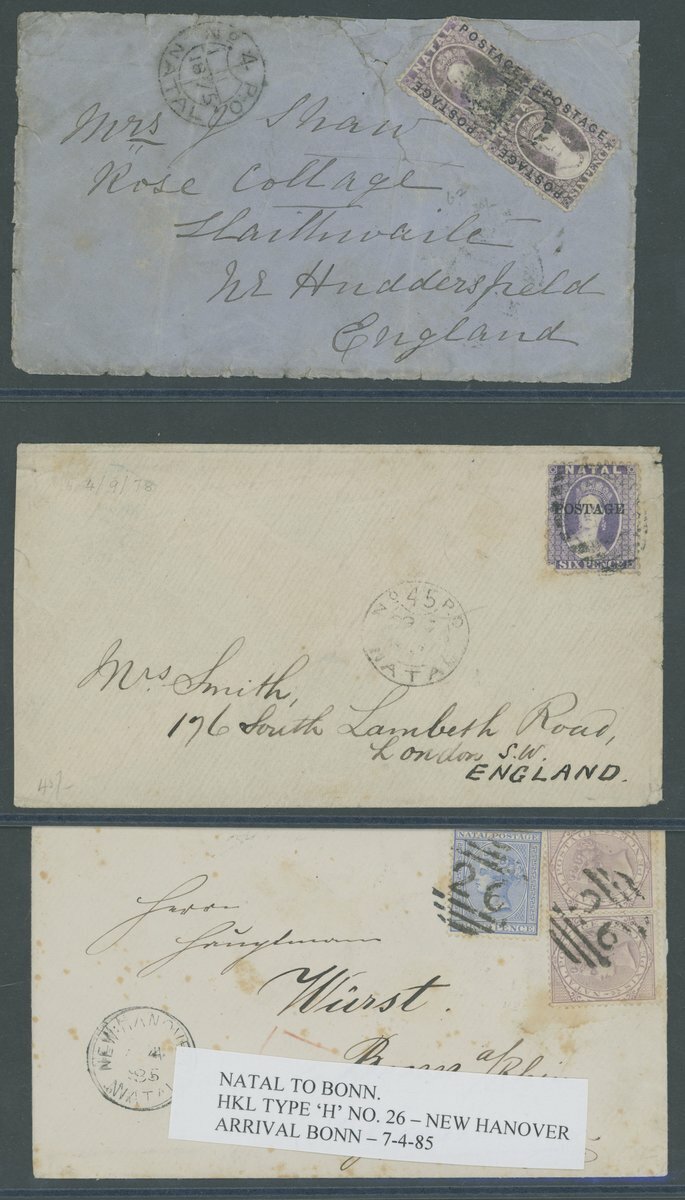 No 4 P.O.
NATAL
NATAL
POSTAGE
POSTAGE
POSTAGE
POSTAGE
Mrs J Shaw
Rose Cottage
Slaithwaite
Nr Huddersfield
England
4/9/78
NATAL
POSTAGE
SIX PENCE
No 45 P.O
NATAL
Mrs Smith,
176 South Lambeth Road,
London S.W.
ENGLAND.
NATAL POSTAGE
PENCE
Herrn
Hauptmann
Würst.
NEW HANOVER
NATAL
a/Rhein
NATAL TO BONN.
HKL TYPE ‘H’ NO. 26 – NEW HANOVER
ARRIVAL BONN – 7-4-85